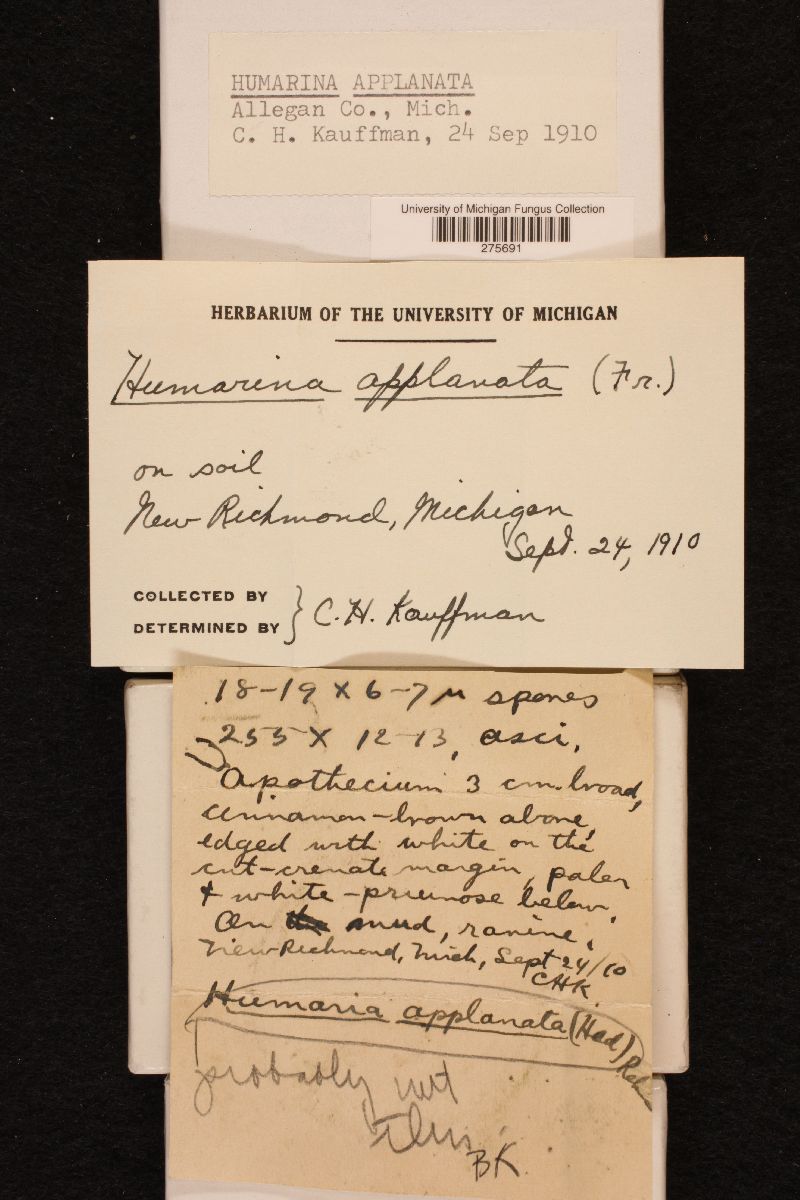 HUMARINA APPLANATA
Allegan Co., Mich.
C. H. Kauffman, 24 Sep 1910
University of Michigan Fungus Collection
275691
HERBARIUM OF THE UNIVERSITY OF MICHIGAN
Humarina applanata (Fr.)
on soil
New Richmond, Michigan
Sept. 24, 1910
COLLECTED BY
DETERMINED BY } C. H. Kauffman
18-19 x 6-7 µ spores
255 x 12-13, asci.
Apothecium 3 cm. broad,
cinnamon-brown above,
edged with white on the
cut-crenate margin, paler
+ white-pruinose below.
On mud, ravine.
New Richmond, Mich, Sept 24/10
CHK.
Humaria applanata (Hed) Rehm
probably not
this
BK